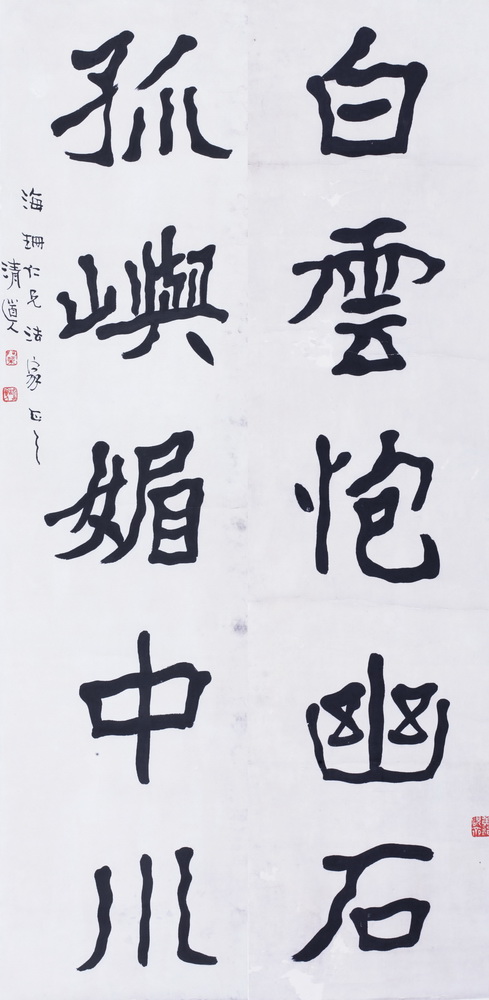 白雲抱幽石
孤嶼媚中川
海珊仁兄法家正之
清道人